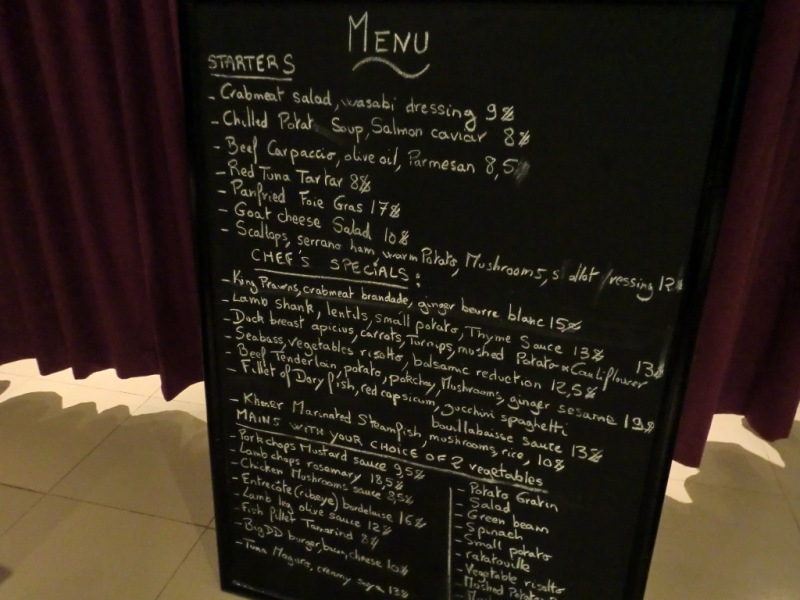 MENU
STARTERS
- Crabmeat salad, wasabi dressing 9$
- Chilled Potat Soup, Salmon caviar 8$
- Beef Carpaccio, olive oil, Parmesan 8,5
- Red Tuna Tartar 8$
- Panfried Foie Gras 17$
- Goat cheese Salad 10$
- Scallops, serrano ham, warm Potato, Mushrooms, s allot ressing 12
CHEF'S SPECIALS:
- King Prawns, crabmeat brandade, ginger beurre blanc 15$
- Lamb shank, lentils, small potato, Thyme Sauce 13$
- Duck breast apicius, carrots, Turnips, mushed Potato & Cauliflower 13$
- Seabass, vegetables risotto, balsamic reduction 12,5$
- Beef Tenderloin, potato, Mushrooms, ginger sesame 19$
- Fillet of Dory fish, red capsicum, zucchini spaghetti
bouillabaisse sauce 13$
- Khmer Marinated Steamfish, mushrooms, rice, 10$
MAINS WITH YOUR CHOICE OF 2 vegetables
- Pork chops Mustard sauce 9,5$
- Lamb chops rosemary 18,5$
- Chicken Mushrooms sauce 9,5$
- Entrecôte (ribeye) bordelaise 16$
- Lamb leg olive sauce 12$
- Fish fillet Tamarind 8$
- Big DD burger, bun, cheese 10$
- Tuna creamy 13$
- Potato Gratin
- Salad
- Green beam
- Spinach
- Small potato
- ratatouille
- Vegetable risotto
- Mushed Potato